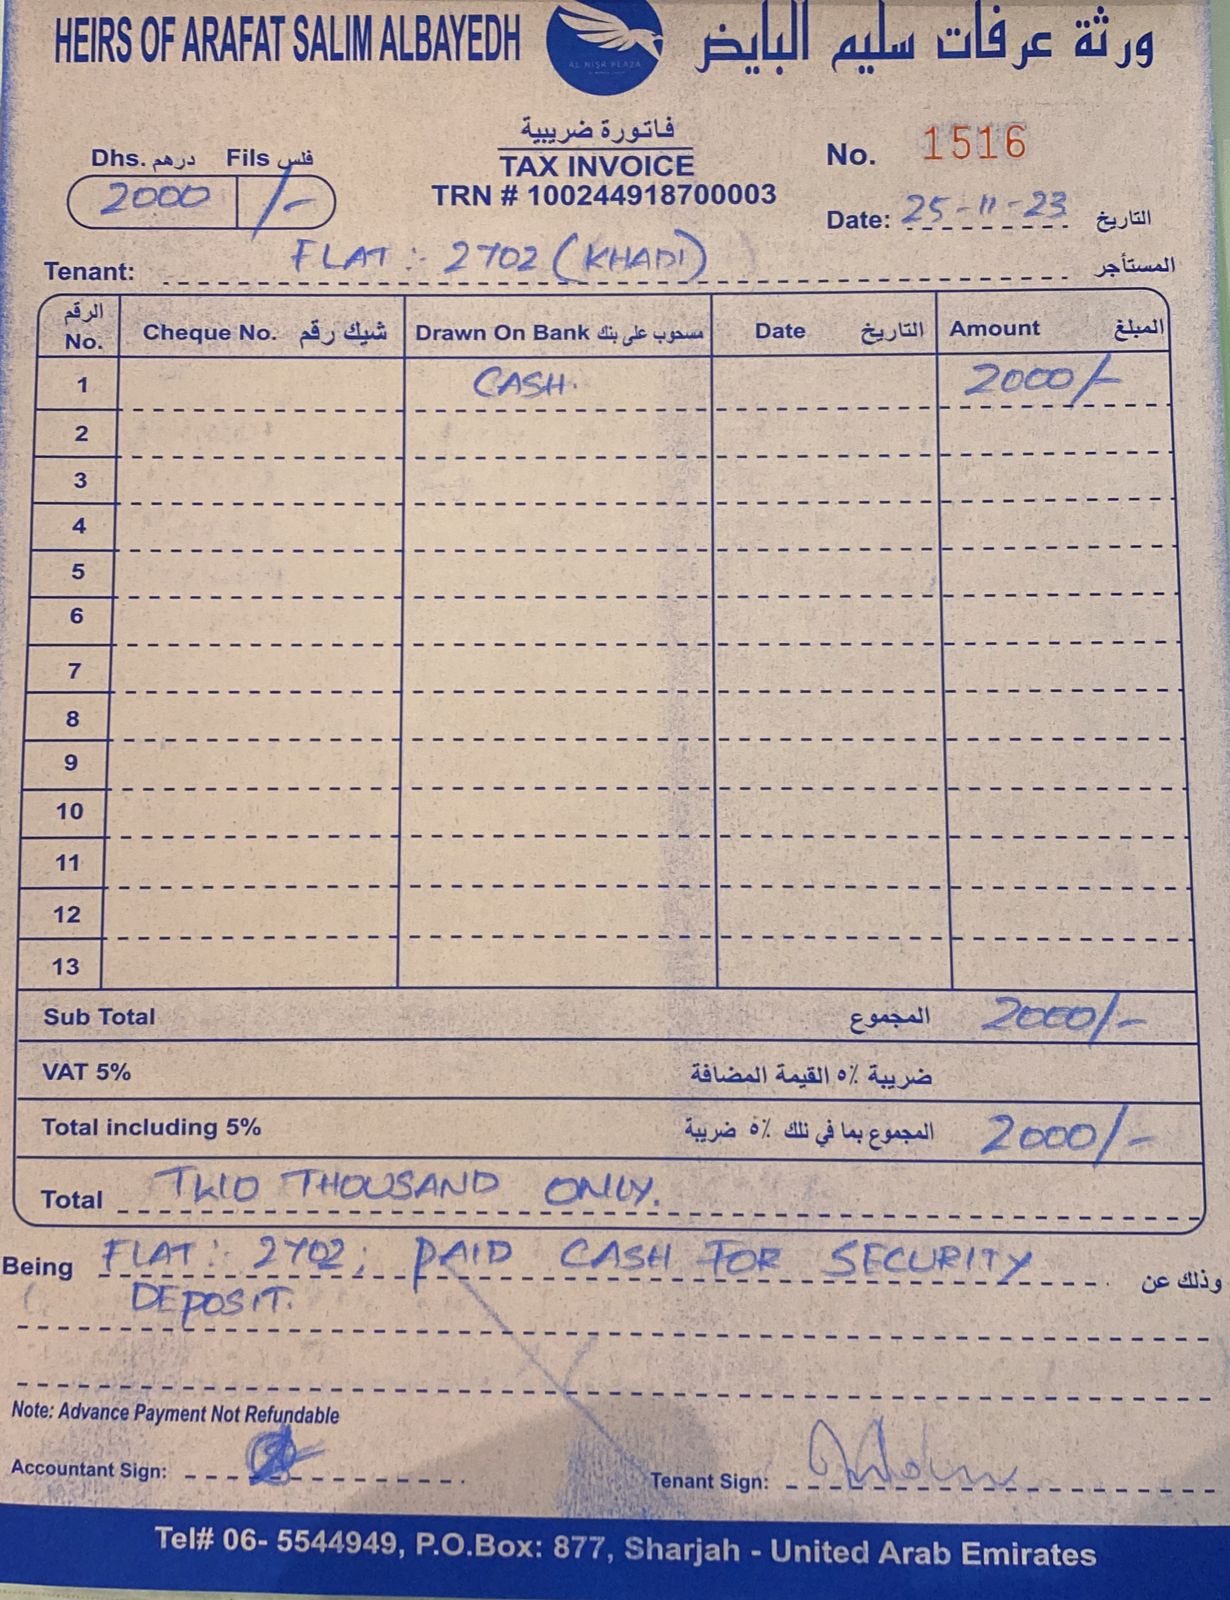 HEIRS OF ARAFAT SALIM ALBAYEDH
AL NISR PLAZA
ورثة عرفات سليم البايض
فاتورة ضريبية
TAX INVOICE
TRN # 100244918700003
Dhs. درهم Fils فلس
2000 /-
No. 1516
Date: 25-11-23 التاريخ
Tenant: FLAT :- 2702 (KHADI) المستأجر
الرقم No. Cheque No. شيك رقم Drawn On Bank مسحوب على بنك Date التاريخ Amount المبلغ
1 CASH. 2000/-
2
3
4
5
6
7
8
9
10
11
12
13
Sub Total المجموع 2000/-
VAT 5% ضريبة ٥٪ القيمة المضافة
Total including 5% المجموع بما في تلك ٥٪ ضريبة 2000/-
Total TWO THOUSAND ONLY.
Being FLAT :- 2702; PAID CASH FOR SECURITY وذلك عن
DEPOSIT.
Note: Advance Payment Not Refundable
Accountant Sign:
Tenant Sign:
Tel# 06- 5544949, P.O.Box: 877, Sharjah - United Arab Emirates